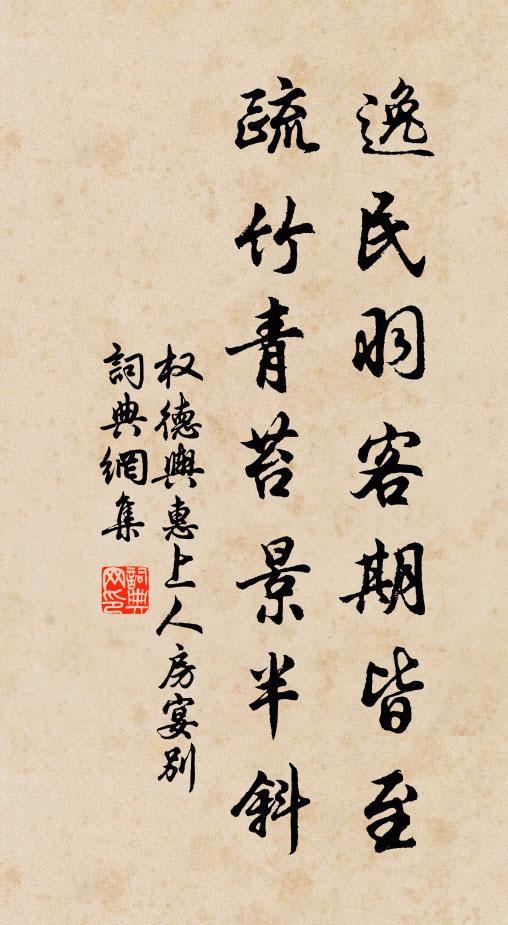 逸民羽客期皆至
疏竹青苔景半斜
权德輿惠上人房宴别
詞典網集
詞典网印